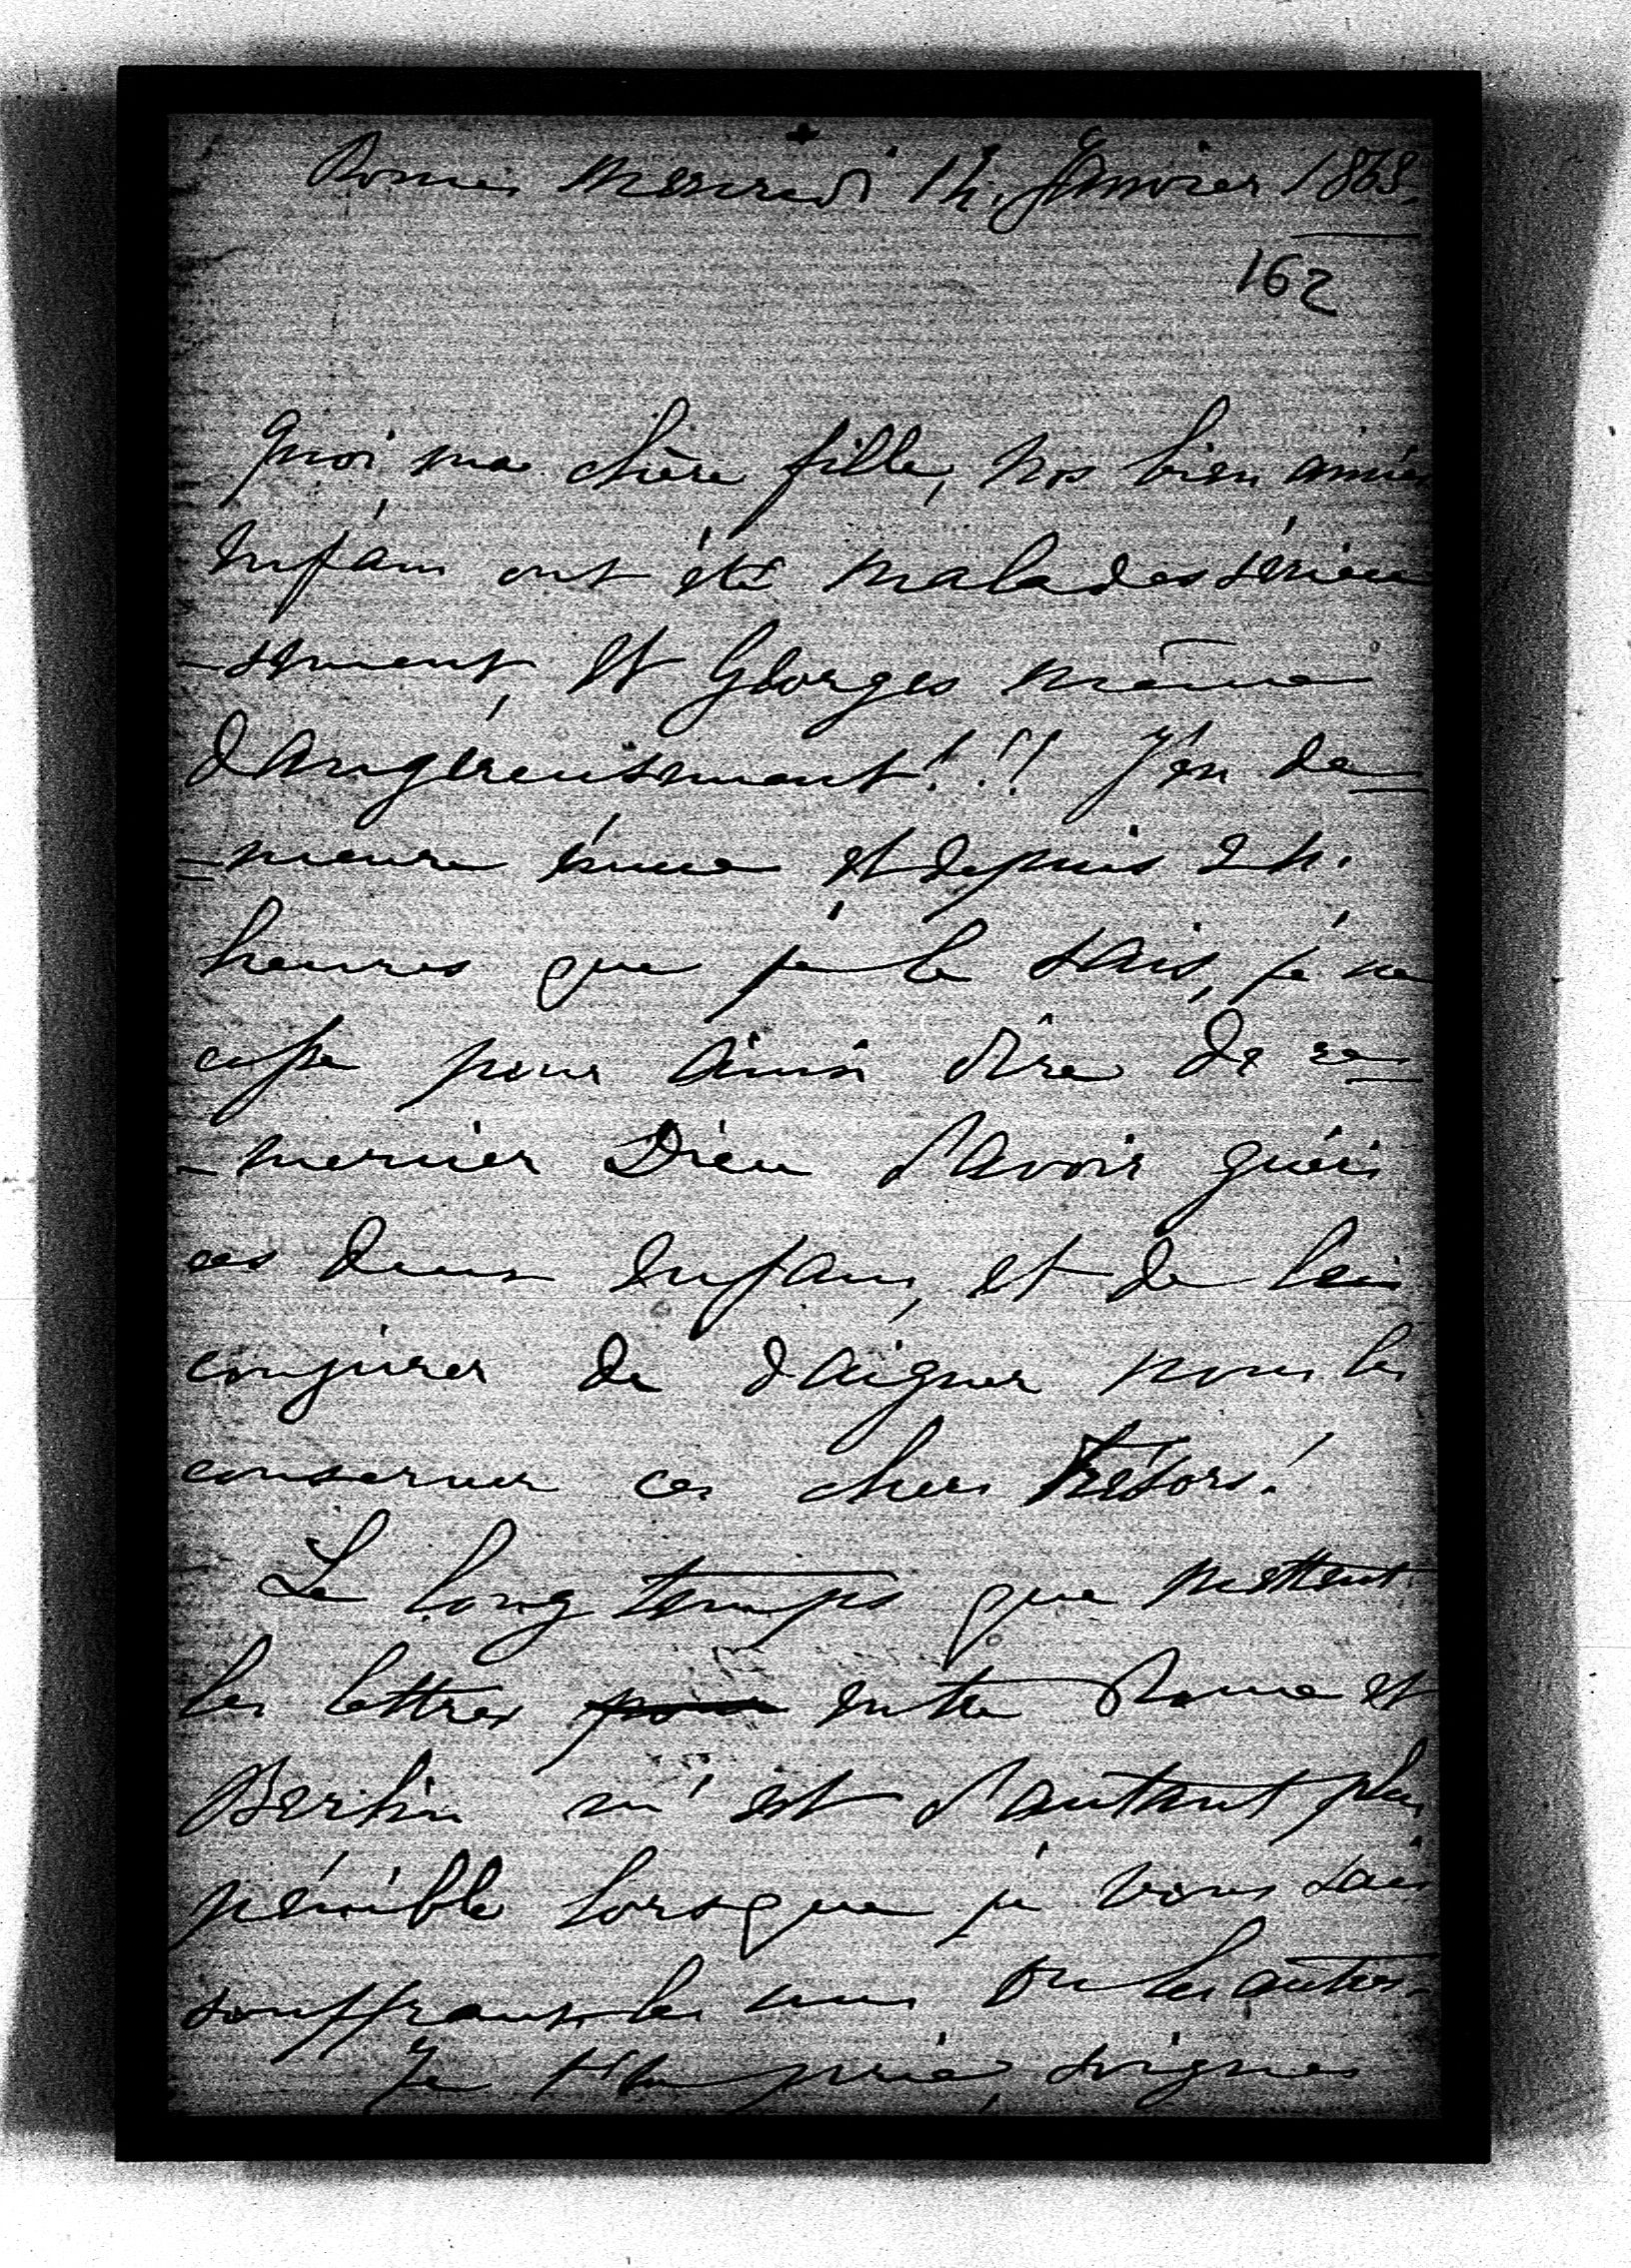 Rome, Mercredi 14. Janvier 1863.
162
Quoi ma chère fille, nos bien aimés
Enfans ont été malades sérieu
-sement, et Georges même
dangéreusement!!! J'en de
-meure émue et depuis 24.
heures que je le sais, je ne
cesse pour ainsi dire de re
-mercier Dieu d'avoir guéri
ces deux Enfans, et de le
conjurer de daigner nous les
conserver ces chers Trésors!
Le long temps que mettent
les lettres pour entre Rome et
Berlin m'est d'autant plus
pénible lorsque je vous sais
souffrans les uns ou les autres.
Je t'en prie, soignes